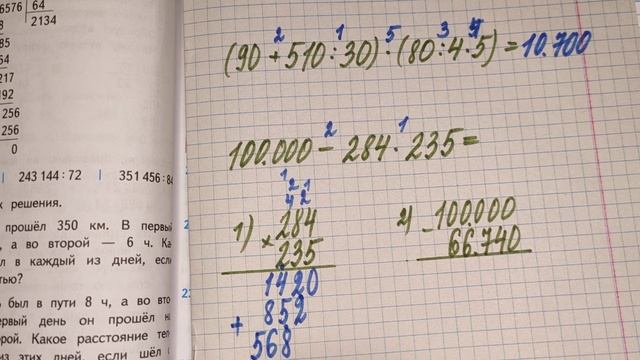 6576 | 64
2134
85
54
217
192
256
256
0
| 243 144 : 72 | 351 456 : 84
х решения.
прошёл 350 км. В первый
, а во второй — 6 ч. Ка
л в каждый из дней, если
тью?
был в пути 8 ч, а во вто
ервый день он прошёл н
рой. Какое расстояние теп
из этих дней, если шёл
2 1 5 3 4
(90 + 510 : 30) · (80 : 4 · 5) = 10.700
2 1
100.000 − 284 · 235 =
1 2 1
4 2
1) 284
× 235
1420
+ 852
568
2) − 100.000
66.740